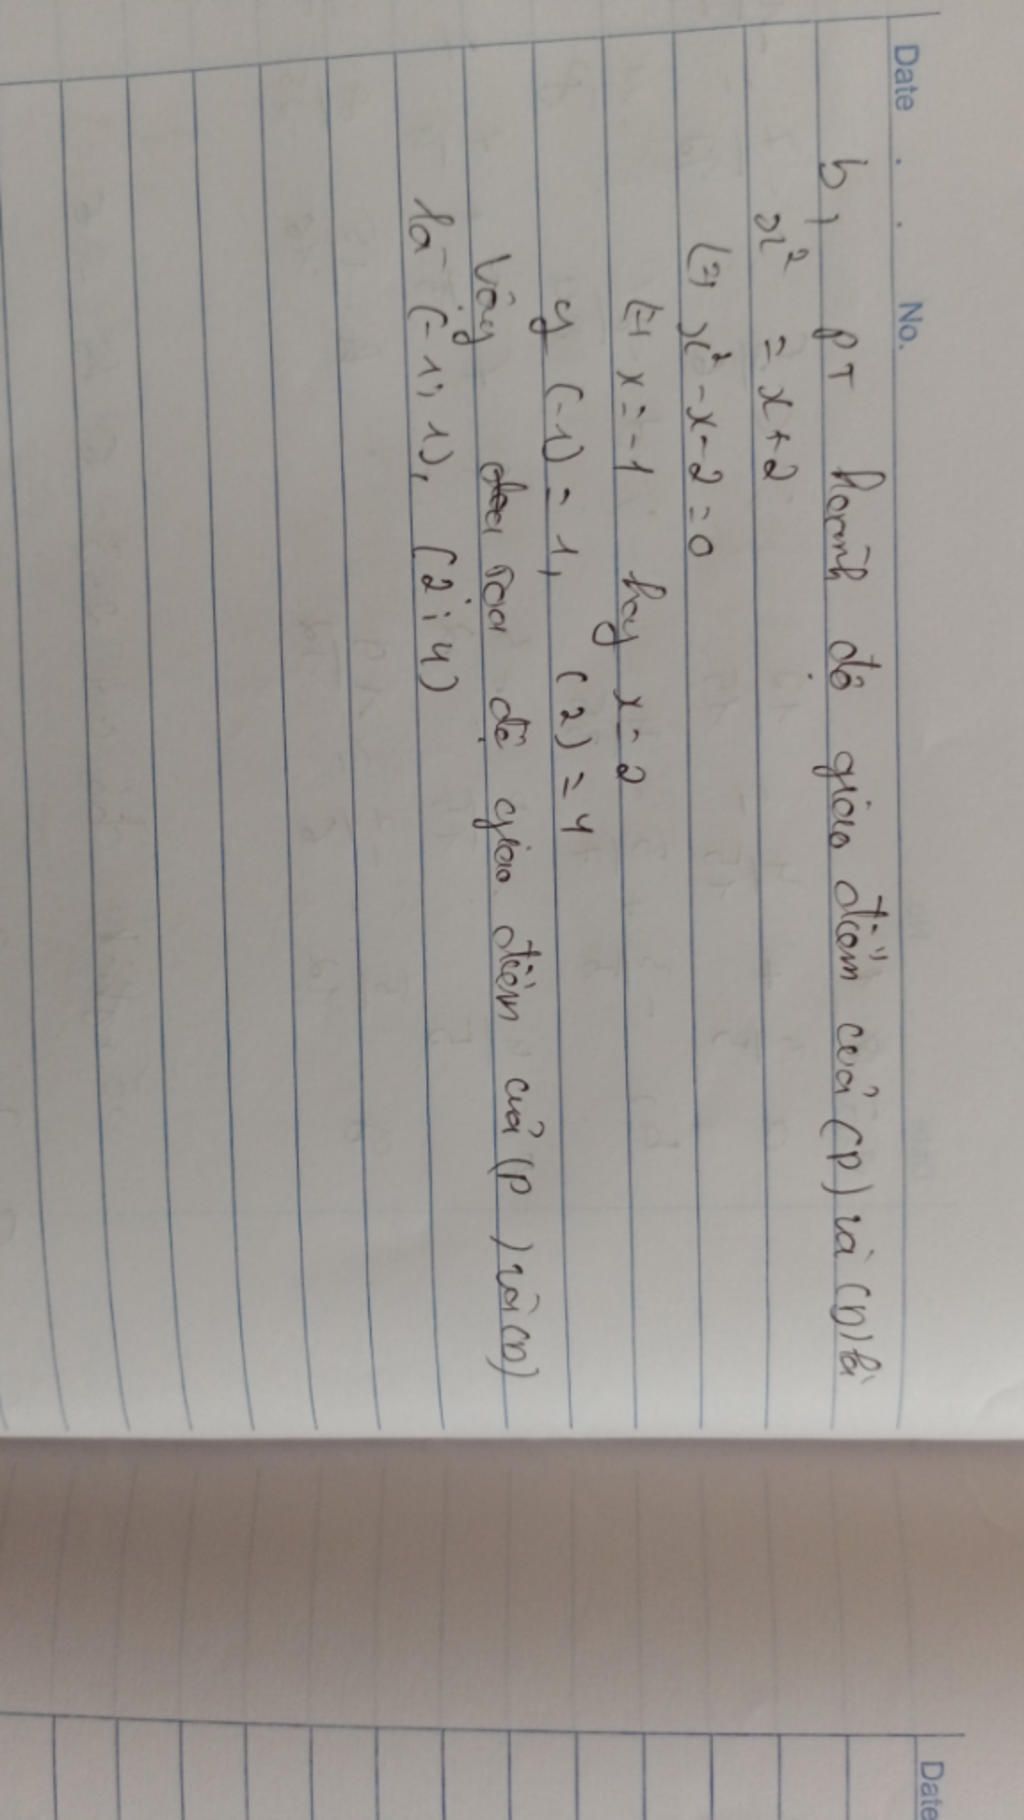 Date . . No.
b, PT hoành độ giao điểm của (P) và (D) là
x² = x+2
(=) x²-x-2=0
(=) x=-1 hay x=2
y (-1) = 1, (2) = 4
Vậy toạ độ giao điểm của (P) và (D)
là (-1; 1), (2; 4)
Date